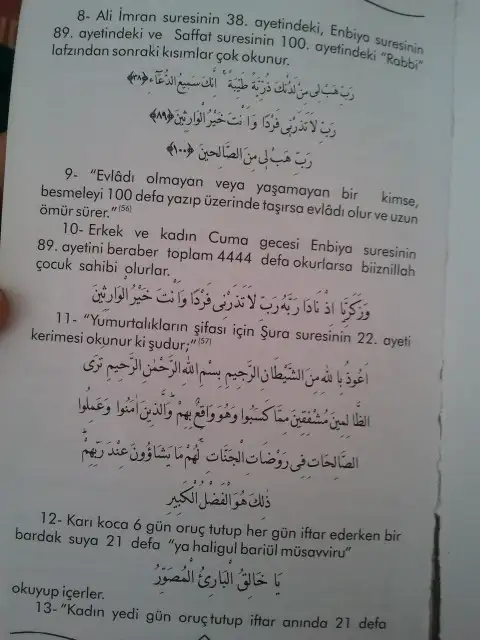 8- Ali İmran suresinin 38. ayetindeki, Enbiya suresinin
89. ayetindeki ve Saffat suresinin 100. ayetindeki "Rabbi"
lafzından sonraki kısımlar çok okunur.
رَبِّ هَبْ لِى مِنْ لَدُنْكَ ذُرِّيَّةً طَيِّبَةً اِنَّكَ سَمِيعُ الدُّعَاءِ ﴿٣٨﴾
رَبِّ لَا تَذَرْنِى فَرْدًا وَاَنْتَ خَيْرُ الْوَارِثِينَ ﴿٨٩﴾
رَبِّ هَبْ لِى مِنَ الصَّالِحِينَ ﴿١٠٠﴾
9- "Evlâdı olmayan veya yaşamayan bir kimse,
besmeleyi 100 defa yazıp üzerinde taşırsa evlâdı olur ve uzun
ömür sürer."(56)
10- Erkek ve kadın Cuma gecesi Enbiya suresinin
89. ayetini beraber toplam 4444 defa okurlarsa biiznillah
çocuk sahibi olurlar.
وَزَكَرِيَّا اِذْ نَادَا رَبَّهُ رَبِّ لَا تَذَرْنِى فَرْدًا وَاَنْتَ خَيْرُ الْوَارِثِينَ
11- "Yumurtalıkların şifası için Şura suresinin 22. ayeti
kerimesi okunur ki şudur;"(57)
اَعُوذُ بِاللهِ مِنَ الشَّيْطَانِ الرَّجِيمِ بِسْمِ اللهِ الرَّحْمٰنِ الرَّحِيمِ تَرَى
الظَّالِمِينَ مُشْفِقِينَ مِمَّا كَسَبُوا وَهُوَ وَاقِعٌ بِهِمْ وَالَّذِينَ اٰمَنُوا وَعَمِلُوا
الصَّالِحَاتِ فِى رَوْضَاتِ الْجَنَّاتِ لَهُمْ مَا يَشَاؤُونَ عِنْدَ رَبِّهِمْ
ذٰلِكَ هُوَ الْفَضْلُ الْكَبِيرُ
12- Karı koca 6 gün oruç tutup her gün iftar ederken bir
bardak suya 21 defa "ya haligul bariül müsavviru"
يَا خَالِقُ الْبَارِئُ الْمُصَوِّرُ
okuyup içerler.
13- "Kadın yedi gün oruç tutup iftar anında 21 defa